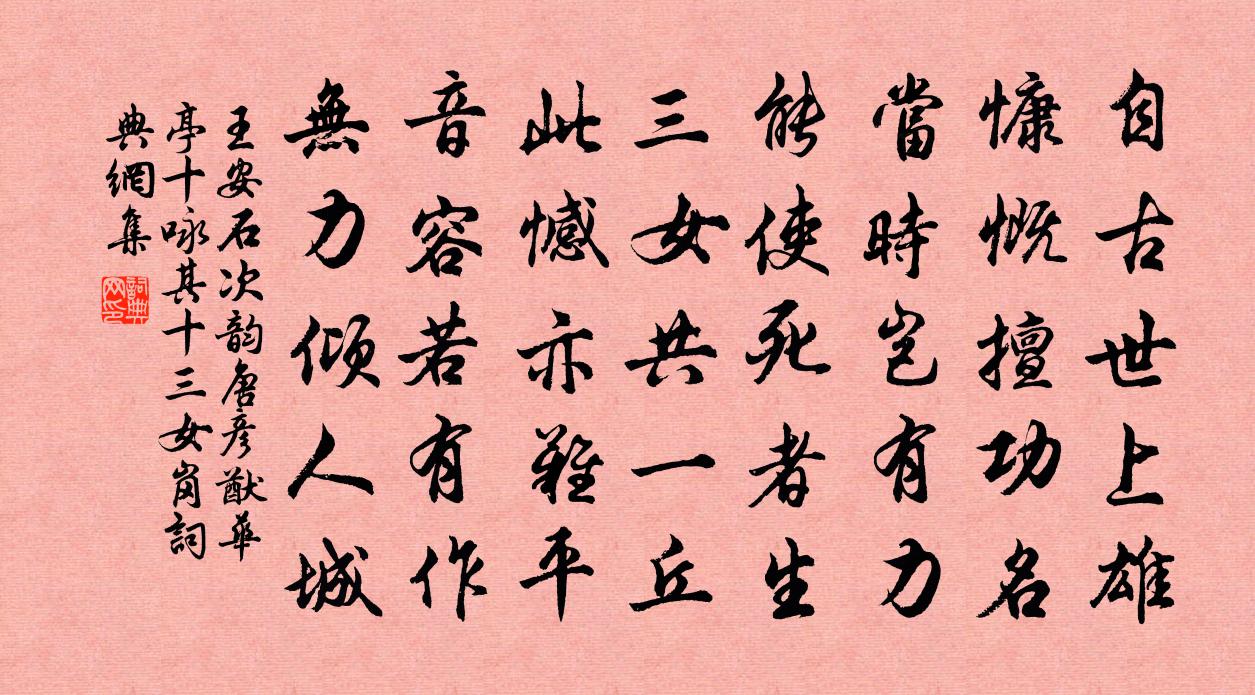 自古世上雄
慷慨擅功名
當時豈有力
能使死者生
三女共一丘
此憾亦難平
音容若有作
無力傾人城
王安石次韵唐彦猷華
亭十咏其十三女岗詞
典網集
詞典
网印